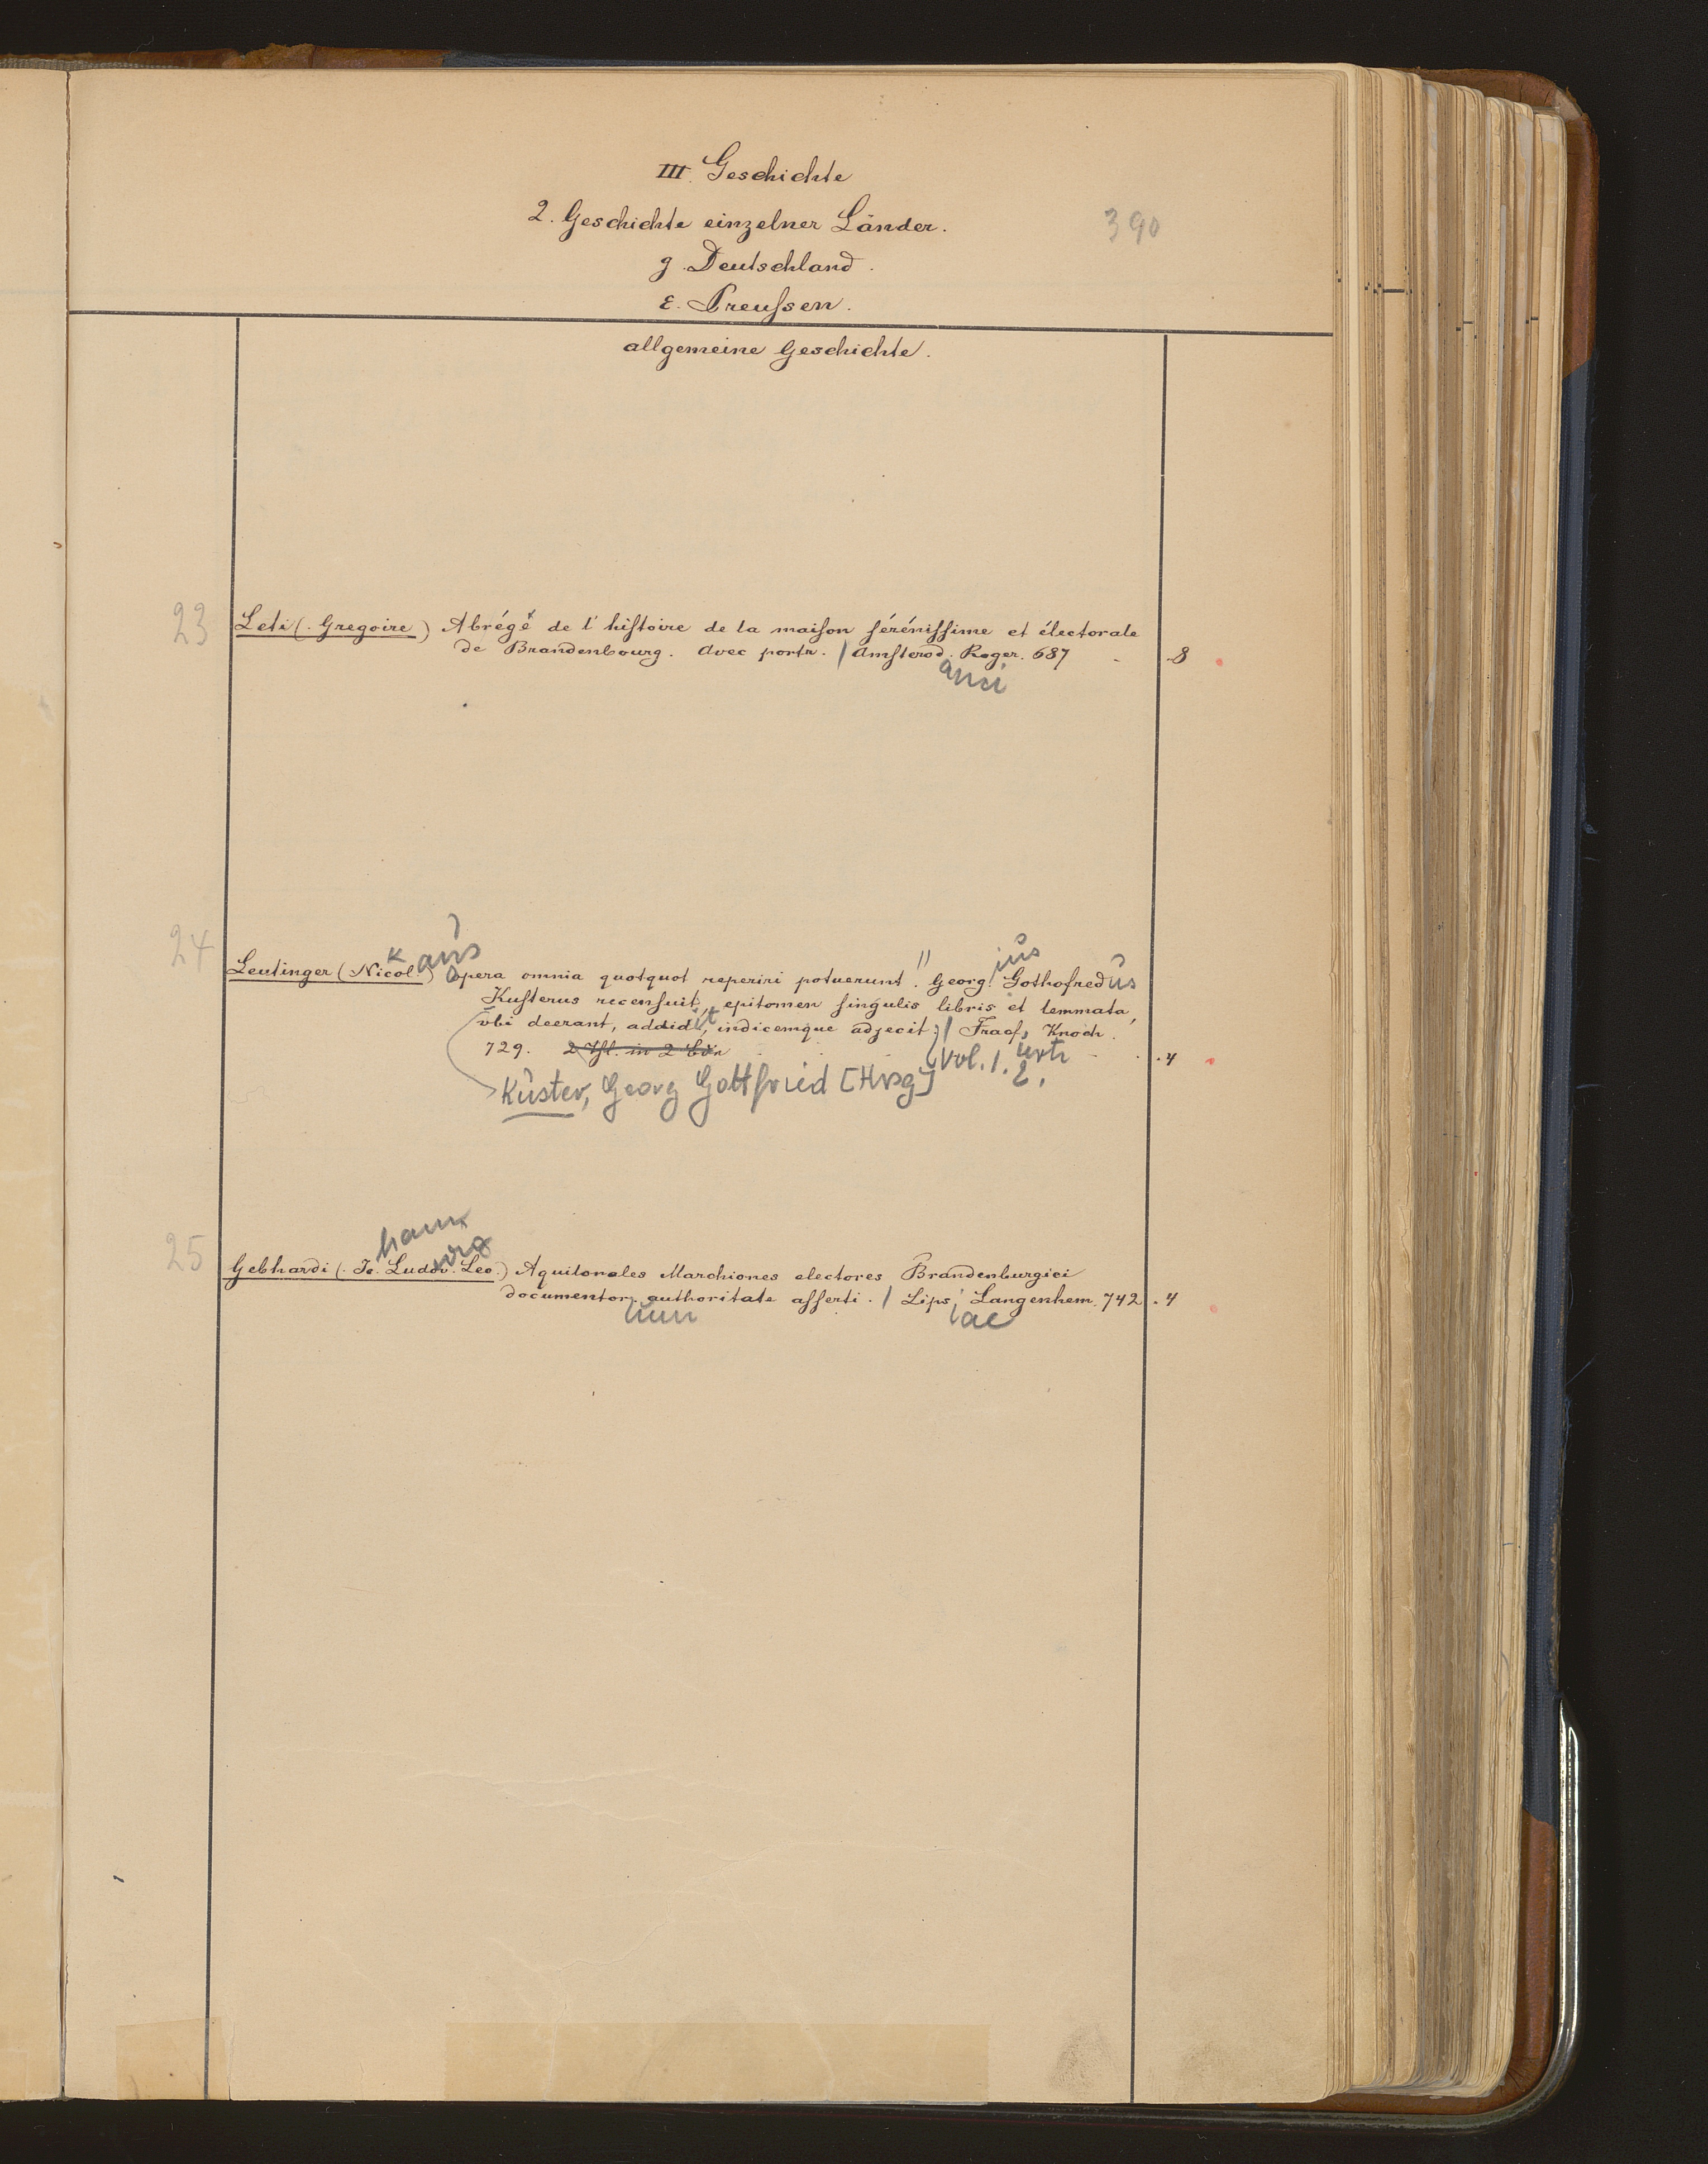 III. Geschichte
2. Geschichte einzelner Länder.
390
g. Deutschland.
ε. Preuſsen.
allgemeine Geschichte.
23 Leti (. Gregoire) Abrégé de l'hiſtoire de la maiſon ſéréniſſime et électorale
de Brandenbourg. Avec portr. / Amſterod. Roger. 687 - 8
ami
k aus ius
24 Leutinger (Nicol.) Opera omnia quotquot reperiri potuerunt. " Georg. Gothofredus
Kuſterus recenſuit, epitomen ſingulis libris et lemmata,
vbi deerant, addidit, indicemque adjecit; / Fracf, Knoch.
729. 2 Thl. in 2 Bdn Vol. 1. 2. . 4
Küster, Georg Gottfried [Hrsg]
hann wig
25 Gebhardi (. Jo. Ludov. Leo.) Aquilonales Marchiones electores Brandenburgici
documentor. authoritate aſſerti. / Lips, Langenhem. 742 . 4
um iae